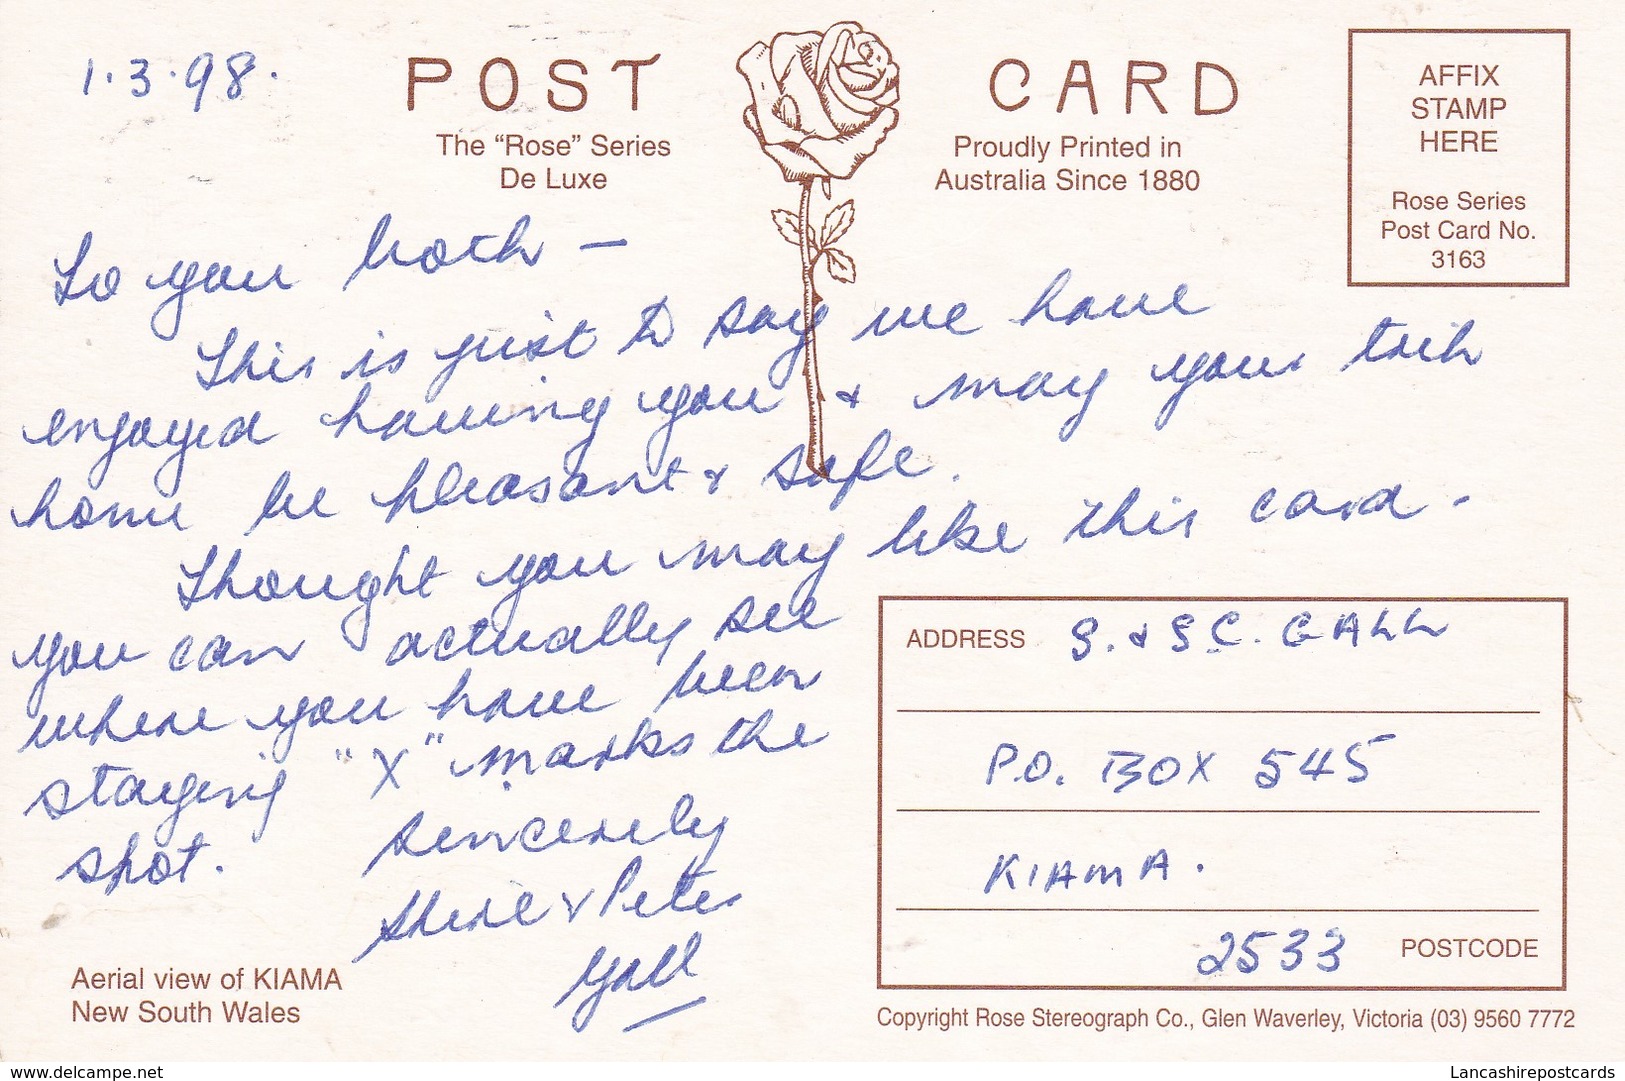 1.3.98.
POST CARD
The "Rose" Series
De Luxe
Proudly Printed in
Australia Since 1880
AFFIX
STAMP
HERE
Rose Series
Post Card No.
3163
To you both —
This is just to say we have
enjoyed having you & may your trip
home be pleasant & safe.
Thought you may like this card -
you can actually see
where you have been
staying "X" marks the
spot.
Sincerely
& Peter
Gall
ADDRESS
GALL
P.O. BOX 545
KIAMA.
2533 POSTCODE
Aerial view of KIAMA
New South Wales
Copyright Rose Stereograph Co., Glen Waverley, Victoria (03) 9560 7772
www.delcampe.net
Lancashirepostcards